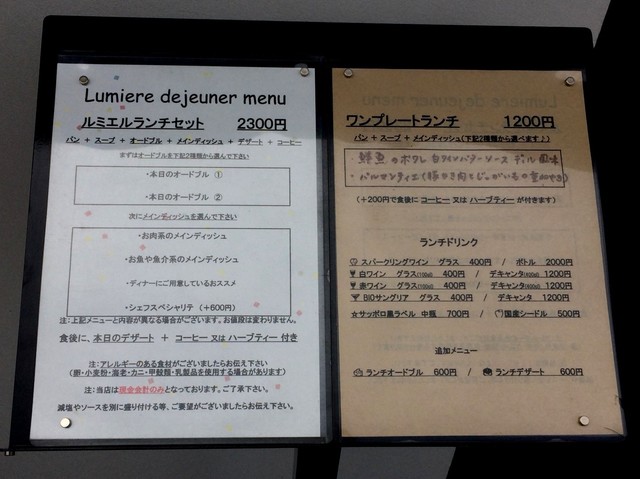 Lumiere dejeuner menu
ルミエルランチセット 2300円
パン + スープ + オードブル + メインディッシュ + デザート + コーヒー
まずはオードブルを下記2種類から選んで下さい
・本日のオードブル ①
・本日のオードブル ②
次にメインディッシュを選んで下さい
・お肉系のメインディッシュ
・お魚や魚介系のメインディッシュ
・ディナーにご用意しているおススメ
・シェフスペシャリテ (+600円)
注:上記メニューと内容が異なる場合がございます。お値段は変わりません。
食後に、本日のデザート + コーヒー 又は ハーブティー 付き
注:アレルギーのある食材がございましたらお伝え下さい
(卵・小麦粉・海老・カニ・甲殻類・乳製品を使用する場合があります)
注:当店は現金会計のみとなっております。ご了承下さい。
減塩やソースを別に盛り付ける等、ご要望がございましたらお伝え下さい。
ワンプレートランチ 1200円
パン + スープ + メインディッシュ(下記2種類から選べます♪)
・鮮魚のポワレ 白ワインバターソース ディル風味
・パルマンティエ(挽き肉とじゃがいもの重ね焼き)
(+200円で食後に コーヒー 又は ハーブティー が付きます)
ランチドリンク
スパークリングワイン グラス 400円 / ボトル 2000円
白ワイン グラス(100ml) 400円 / デキャンタ(400ml) 1200円
赤ワイン グラス(100ml) 400円 / デキャンタ(400ml) 1200円
BIOサングリア グラス 400円 / デキャンタ 1200円
☆サッポロ黒ラベル 中瓶 700円 / 国産シードル 500円
追加メニュー
ランチオードブル 600円 / ランチデザート 600円